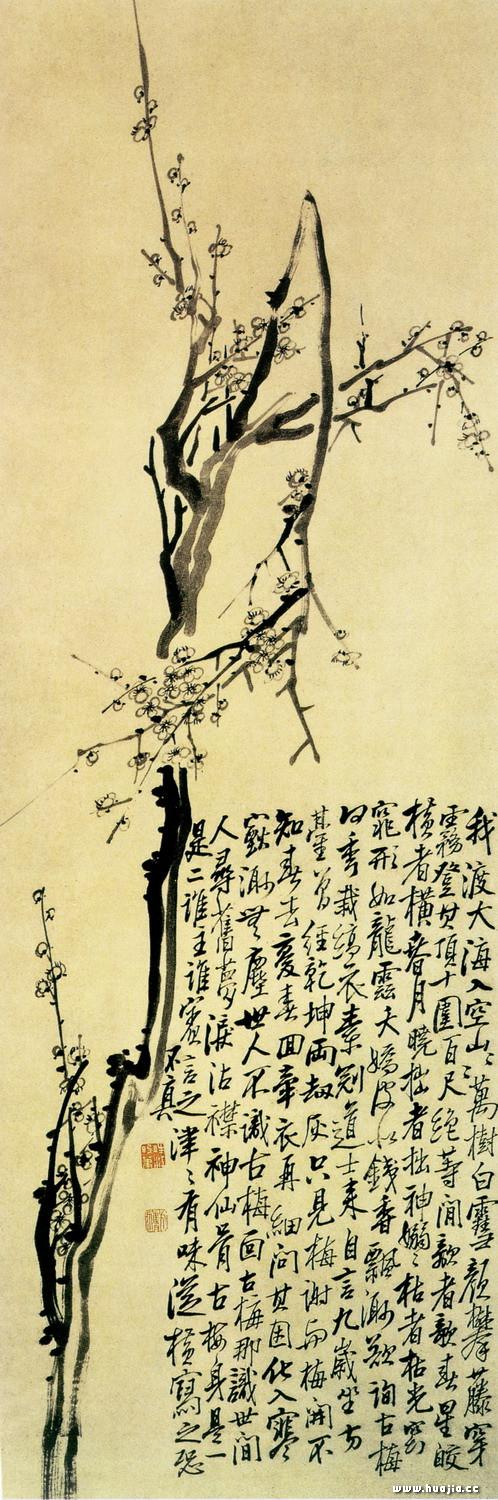 我渡大海入空山〻萬樹白雪顏攀藤穿
霧登其頂十圍百尺絕等閒欹者欹春星皎
橫者橫春月曉拙者拙神嫋〻枯者枯光窈
窕形如龍靈夭嬌皮似錢香飄渺欲詢古梅
何年栽縞衣素冠道士來自言九歲坐方
臺曾經乾坤兩劫灰只見梅謝與梅開不
知春去復春回牽衣再細問其因化入寥
渺無塵世人不識古梅面古梅那識世間
人尋舊夢淚沾襟神仙骨古梅身是一
是二誰主誰賓言之津〻有味橫寫之恐
不真
www.huajia.cc